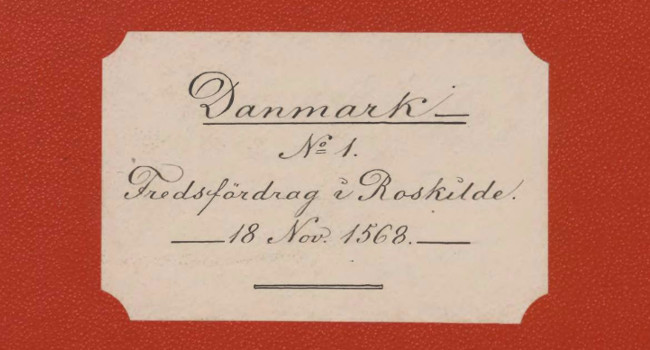 Danmark
No 1.
Fredsfördrag i Roskilde.
18 Nov. 1568.